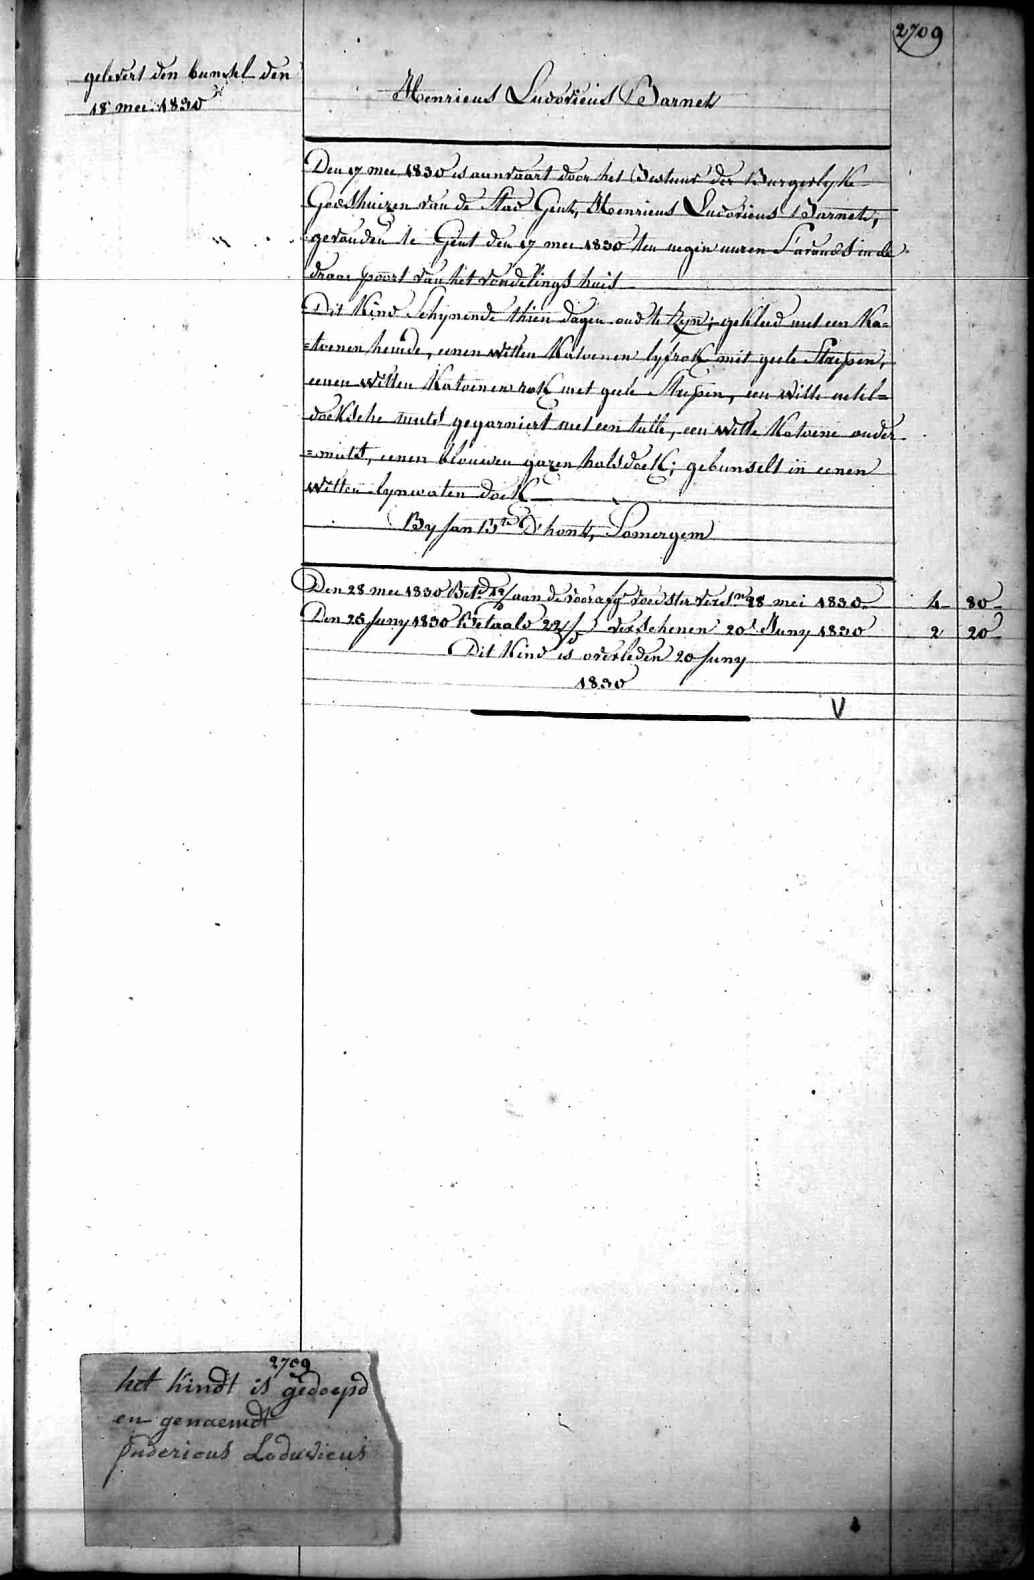 2709
gelevert den bunsel den
18 mei 1830
Henricus Ludovicus Barnet
Den 17 mei 1830 is aanvaart door het Bestuur der Burgerlyke
Godshuizen van de Stad Gent, Henricus Ludovicus Barnet,
gevonden te Gent den 17 mei 1830 ten negen uuren s'avonds in de
draaipoort van het vondelings huis
Dit Kind Schynende thien dagen oud te zyn; gekleed met een Ka=
=toenen hemde, eenen witten Katoenen lyfrok met geele Strepen,
eenen witten Katoenen rok met geele Strepen, een witte netel=
doeksche muts gegarniert met een tulle, een witte Katoene onder
=muts, eenen blouwen gazen halsdoek; gebunselt in eenen
witten lynwaten doek
By Jan Bte D'hont, Somergem
Den 28 mei 1830 Betd aan de voorafg voedster 28 mei 1830 4 80
Den 25 Juny 1830 Betaald verschenen 20 Juny 1830 2 20
Dit Kind is overleden 20 Juny
1830
V
2709
het kindt is gedoept
en genaemdt
Ludovicus